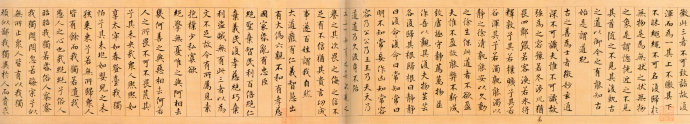 微此三者不可致詰故復
混而為一其上不皦其下
不昧繩繩不可名復歸於
無物是謂無狀之狀無物
之象是謂惚恍迎之不見
其首隨之不見其後執古
之道以御今之有能知古
始是謂道紀
古之善為士者微妙玄通
深不可識夫惟不可識故
強為之容豫若冬涉川猶若
畏四鄰儼若客渙若冰將
釋敦兮其若樸曠兮其
若谷渾兮其若濁孰能濁以
靜之徐清孰能安以久動
之徐生保此道者不欲盈
夫惟不盈故能敝不新成
致虛極守靜篤萬物並
作吾以觀其復夫物芸芸
各復歸其根歸根曰靜靜
曰復命復命曰常知常曰
明不知常妄作凶知常
容容乃公公乃王王乃天天乃
道道乃久沒身不殆
太上下知有之其次親之
譽之其次畏之侮之信不
足有不信猶兮其貴言功成
事遂百姓謂我自然
大道廢有仁義智慧出
有大偽六親不和有孝慈
國家昏亂有忠臣
絕聖棄智民利百倍絕仁
棄義民復孝慈絕巧棄
利盜賊無有此三者以為
文不足故令有所屬見素
抱樸少私寡欲
絕學無憂唯之與阿相去
幾何善之與惡相去何若
人之所畏不可不畏荒兮其
未央眾人熙熙如
享太牢如春登臺我獨
怕兮其未兆如嬰兒之未
孩乘乘兮若無所歸眾人
皆有餘而我獨若遺我愚
人之心也哉沌沌兮俗人
昭昭我獨若昏俗人察察
我獨悶悶忽若晦寂兮似
無所止眾人皆有以我獨
頑似鄙我獨異於人而貴求食